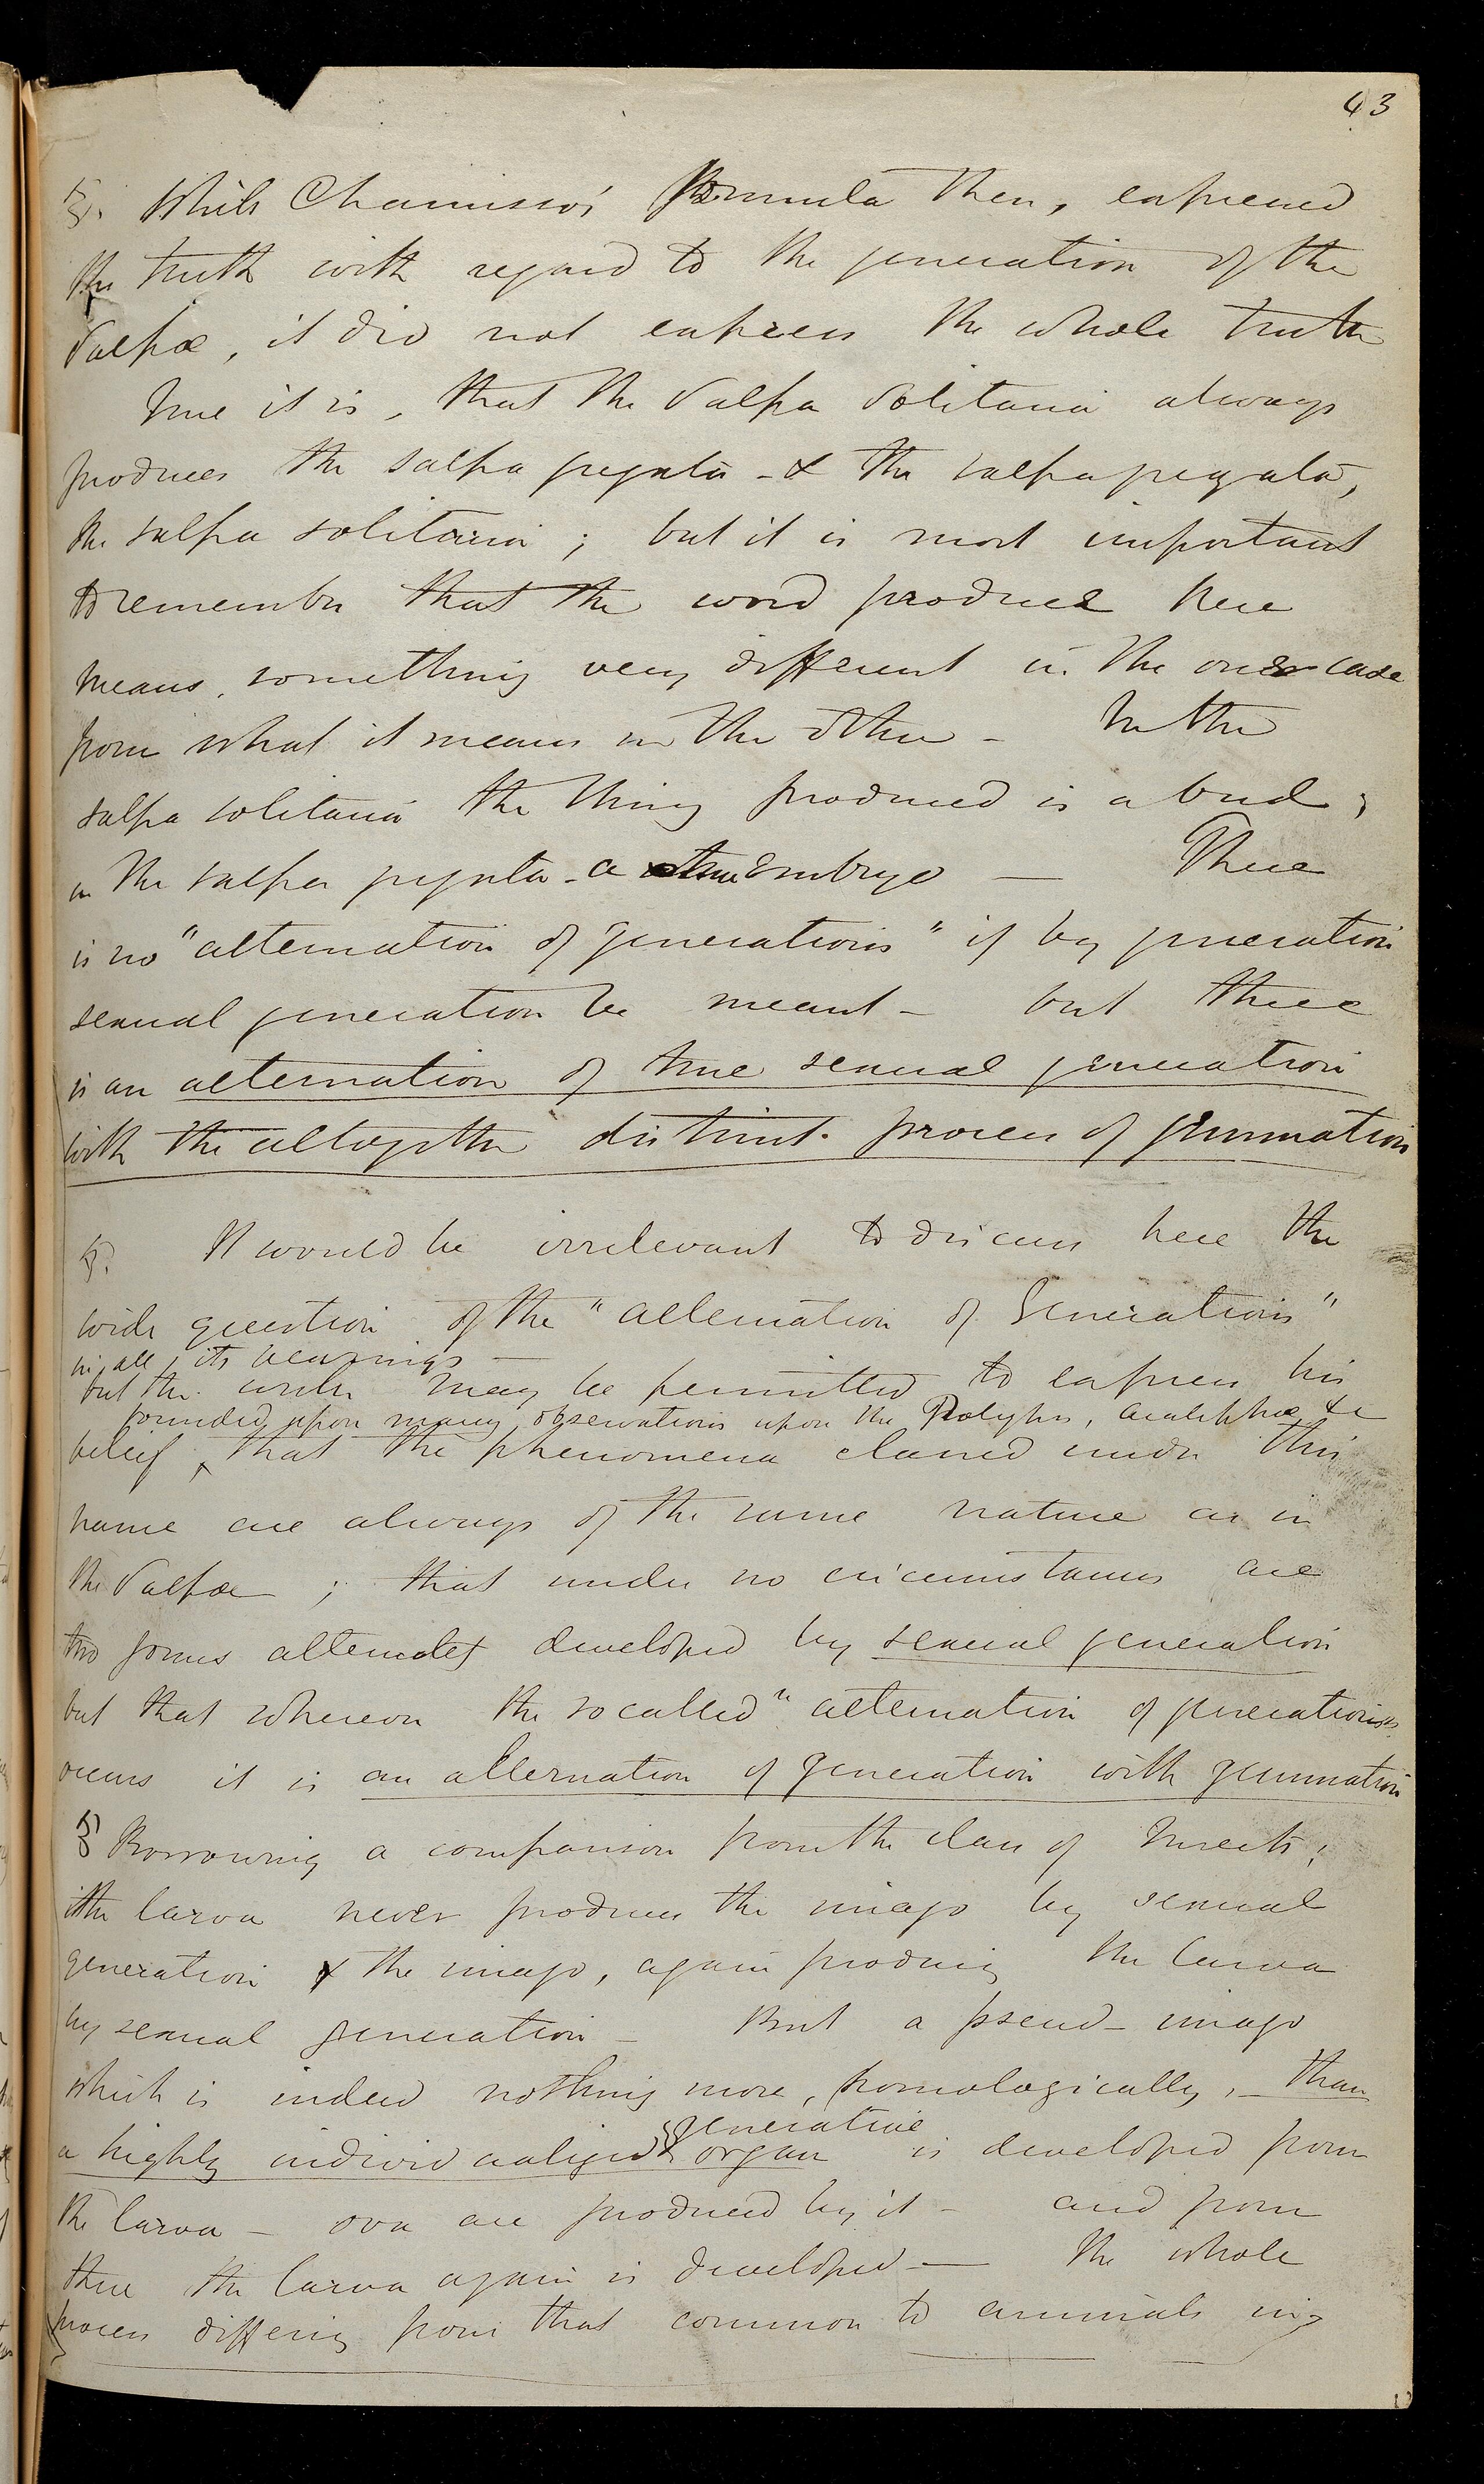 43
§. While Chamisso's formula then, expressed
the truth with regard to the generation of the
Salpæ, it did not express the whole truth
True it is, that the Salpa solitaria always
produces the salpa gregata - & the salpa gregata,
the salpa solitaria ; but it is most important
to remember that the word produce here
means, something very different in the one case
from what it means in the other - In the
salpa solitaria the thing produced is a bud ;
in the salpa gregata - a true Embryo — There
is no "alternation of generations" if by generation
sexual generation be meant - but there
is an alternation of true sexual generation
with the altogether distinct process of gemmation
§. It would be irrelevant to discuss here the
wide question of the "alternation of Generations"
in all its bearings —
but the writer may be permitted to express his
founded upon many observations upon the Polypes, Acalephæ &c
belief ‸ that the phenomena classed under this
name are always of the same nature as in
the Salpæ ; that under no circumstances are
two forms alternately developed by sexual generation
but that whereon the so called "alternation of generations"
occurs it is an alternation of generation with gemmation
§ Borrowing a comparison from the class of Insects ;
the larva never produces the imago by sexual
generation & the imago, again producing the larva
by sexual generation - But a pseud-imago
which is indeed nothing more, homologically, - than
generative
a highly individualized organ is developed from
the larva - ova are produced by it - and from
these the larva again is developed — the whole
process differing from that common to animals in